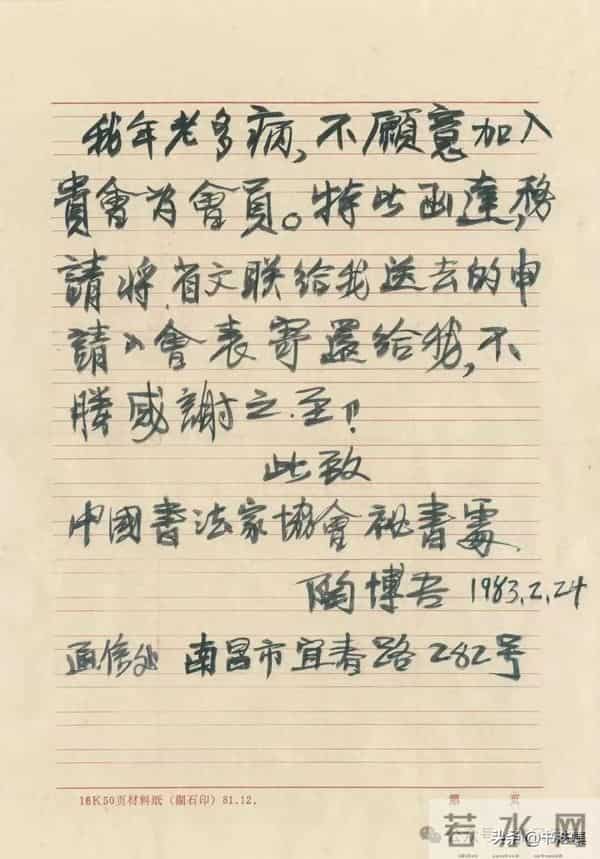 我年老多病，不願意加入
貴會为會員。特此函達，務
請将省文联给我送去的申
請入會表寄還给我，不
勝感謝之至！
此致
中國書法家協會祕書處
陶博吾 1983.2.24
通信处 南昌市宜春路282号
16K50页材料纸 81.12.
第 页
若水网